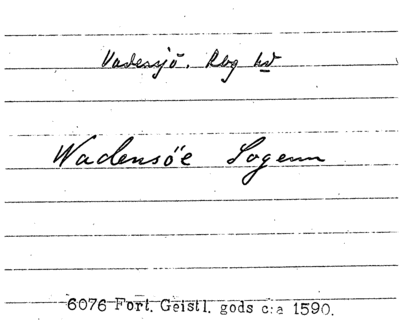 Vadensjö. Rbg hd
Wadensöe Sogenn
6076 Fort. Geistl. gods c:a 1590.